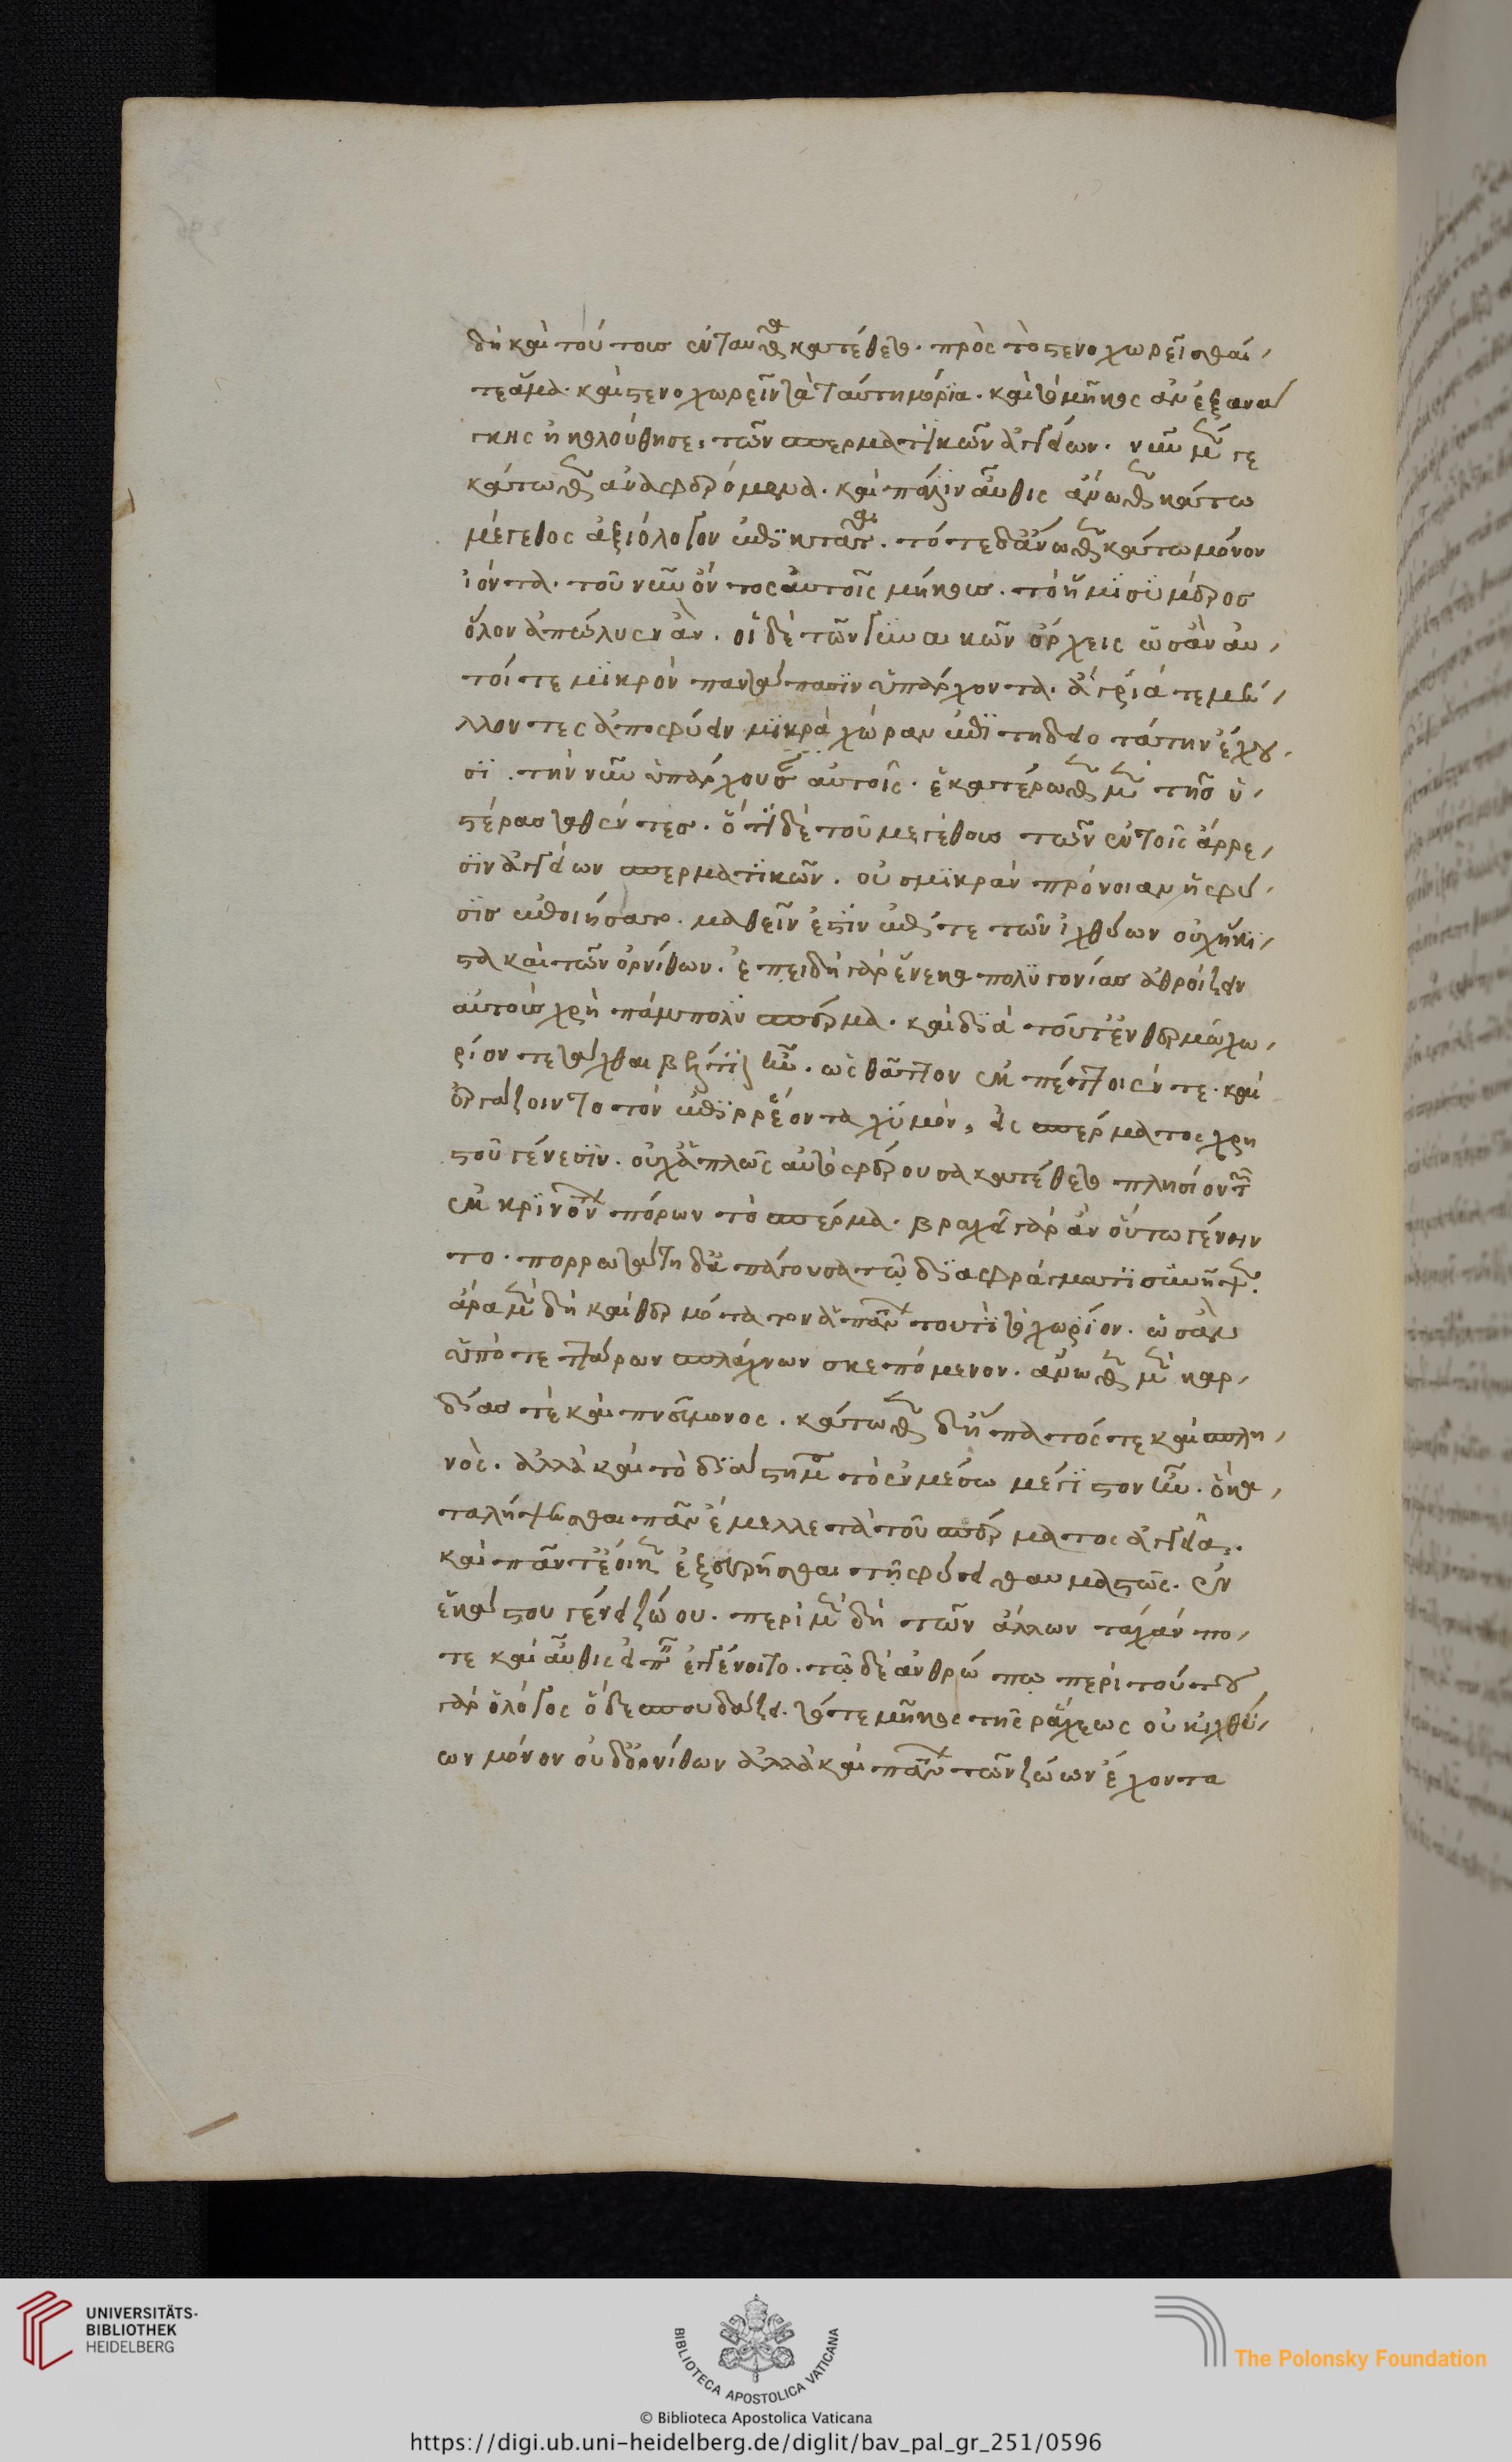 δὴ καὶ τούτους ἐνταῦθα κατέθετο. πρὸς τὸ στενοχωρεῖσθαί
τε ἅμα. καὶ στενοχωρεῖν τὰ ταύτῃ μόρια. καὶ τὸ μῆκος ἂν ἐξ ἀνά
γκης ἠκολούθησε, τῶν σπερματικῶν ἀγγείων. νῦν μέν γε
κάτωθεν ἀναφερόμενα. καὶ πάλιν αὖθις ἄνωθεν κάτω
μέγεθος ἀξιόλογον ἐπικτᾶται. τότε δ' ἄνωθεν κάτω μόνον
ἰόντα. τοῦ νῦν ὄντος αὐτοῖς μήκους. τὸ ἥμισυ μέρος
ὅλον ἀπώλυεν ἄν. οἱ δὲ τῶν γυναικῶν ὄρχεις ὡσὰν αὐ
τοί τε μικρὸν παντάπασιν ὑπάρχοντα. ἀγγεῖά τε μέ
λλοντες ἀποφύειν μικρὰ χώραν ἐπιτηδειοτάτην ἔχου
σι. τὴν νῦν ὑπάρχουσαν αὐτοῖς. ἑκατέρωθεν μὲν τῆς ὑ
στέρας ταθέντες. ὅτι δὲ τοῦ μεγέθους τῶν ἐν τοῖς ἄρρε
σιν ἀγγείων σπερματικῶν. οὐ σμικρὰν πρόνοιαν ἡ φύ
σις ἐποιήσατο. μαθεῖν ἔστιν ἐπί τε τῶν ἰχθύων οὐχ ἥκι
στα καὶ τῶν ὀρνίθων. ἐπειδὴ γὰρ ἕνεκα πολυγονίας ἀθροίζειν
αὐτοὺς χρὴ πάμπολυ σπέρμα. καὶ διὰ τοῦτ' ἐν θερμῷ χω
ρίον τετάχθαι βέλτιον ἦν. ὡς θᾶττον ἐκπέττοιέν τε. καὶ
ἐργάζοιντο τὸν ἐπιρρέοντα χυμὸν, εἰς σπέρματος χρη
στοῦ γένεσιν. οὐχ ἁπλῶς αὐτὸ φέρουσα κατέθετο πλησίον τῶν
ἐκκρινόντων πόρων τὸ σπέρμα. βραχεῖα γὰρ ἂν οὕτω γένοιν
το. πορρωτάτη δ' ἀπάγουσα τῷ διαφράγματι συνῆψεν.
ἄρα μὲν δὴ καὶ θερμότατον ἁπάντων τουτὶ τὸ χωρίον. ὡσὰν
ὑπό τε τεττάρων σπλάγχνων σκεπόμενον. ἄνωθεν μὲν καρ
δίας τὲ καὶ πνεύμονος. κάτωθεν δ' ἥπατός τε καὶ σπλη
νός. ἀλλὰ καὶ τὸ διάστημα τὸ ἐν μέσῳ μέγιστον ἦν. ὃ κα
ταλήψεσθαι πᾶν ἔμελλε τὰ τοῦ σπέρματος ἀγγεῖα.
καὶ πάντ' ἔοικεν ἐξευρῆσθαι τῇ φύσει θαυμαστῶς. ἐν
ἑκάστου γένει ζώου. περὶ μὲν δὴ τῶν ἄλλων ταχ' ἄν πο
τε καὶ αὖθις εἰπεῖν ἐγγένοιτο. τῷ δὲ ἀνθρώπῳ περὶ τούτου
γὰρ ὁ λόγος ὅδε σπουδάζει. τό τε μῆκος τῆς ῥάχεως οὐκ ἰχθύ
ων μόνον οὐδ' ὀρνίθων ἀλλὰ καὶ πάντων τῶν ζώων ἔχοντα
UNIVERSITÄTS-
BIBLIOTHEK
HEIDELBERG
BIBLIOTECA APOSTOLICA VATICANA
The Polonsky Foundation
© Biblioteca Apostolica Vaticana
https://digi.ub.uni-heidelberg.de/diglit/bav_pal_gr_251/0596